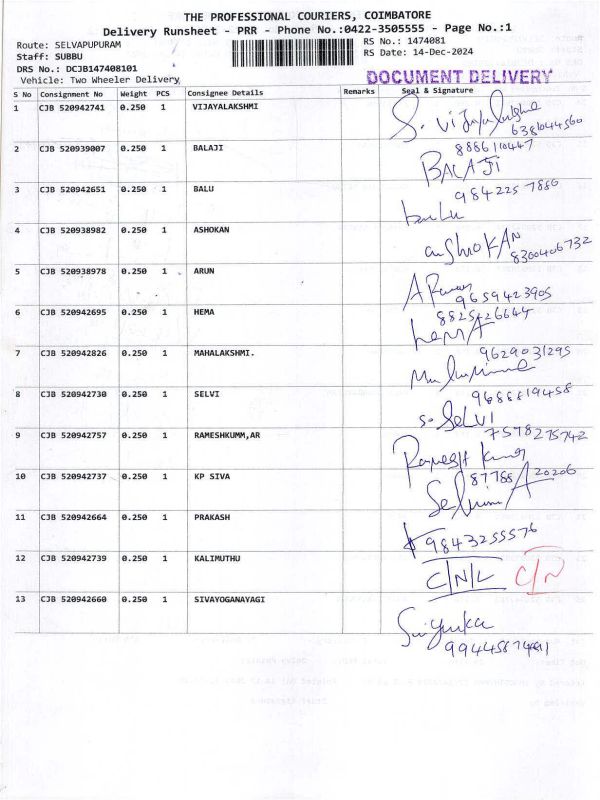 THE PROFESSIONAL COURIERS, COIMBATORE
Delivery Runsheet - PRR - Phone No.:0422-3505555 - Page No.:1
Route: SELVAPUPURAM
RS No.: 1474081
Staff: SUBBU
RS Date: 14-Dec-2024
DRS No.: DCJB147408101
Vehicle: Two Wheeler Delivery
DOCUMENT DELIVERY
S No Consignment No Weight PCS Consignee Details Remarks Seal & Signature
1 CJB 520942741 0.250 1 VIJAYALAKSHMI S. Vijayalakshmi
6381044560
2 CJB 520939007 0.250 1 BALAJI 8886110447
BALAJI
3 CJB 520942651 0.250 1 BALU 9842257886
balu
4 CJB 520938982 0.250 1 ASHOKAN ashoKAN
8300406732
5 CJB 520938978 0.250 1 ARUN
9659423905
6 CJB 520942695 0.250 1 HEMA 8825426644
hemA
7 CJB 520942826 0.250 1 MAHALAKSHMI. 9629031295
8 CJB 520942730 0.250 1 SELVI 9688819458
S. SELVI
9 CJB 520942757 0.250 1 RAMESHKUMM,AR 7578275742
Ramesh Kumar
10 CJB 520942737 0.250 1 KP SIVA 87785 20206
11 CJB 520942664 0.250 1 PRAKASH
9843255576
12 CJB 520942739 0.250 1 KALIMUTHU C/N/L C/N
13 CJB 520942660 0.250 1 SIVAYOGANAYAGI